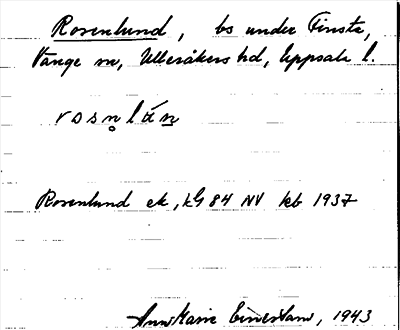 Rosenlund, bs under Finsta,
Vänge sn, Ulleråkers hd, Uppsala l.
rosn̥lán
Rosenlund ek, kG 84 NV kb 1937
AnnMarie 1943